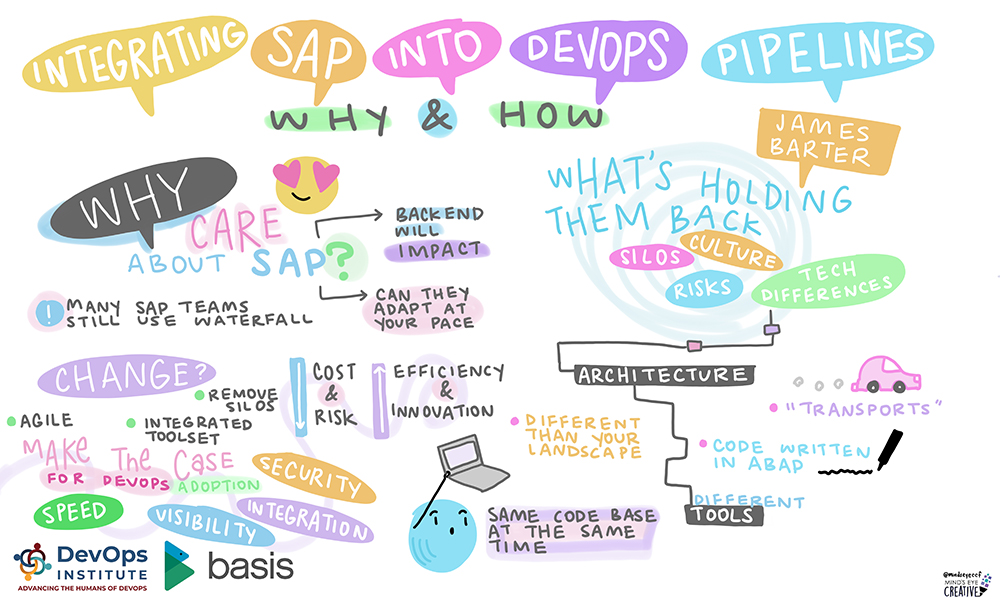 INTEGRATING SAP INTO DEVOPS PIPELINES
WHY & HOW
JAMES
BARTER
WHY
CARE
ABOUT SAP?
BACKEND
WILL
IMPACT
CAN THEY
ADAPT AT
YOUR PACE
! MANY SAP TEAMS
STILL USE WATERFALL
WHAT'S HOLDING
THEM BACK
SILOS
CULTURE
RISKS
TECH
DIFFERENCES
CHANGE?
AGILE
INTEGRATED
TOOLSET
REMOVE
SILOS
COST
&
RISK
EFFICIENCY
&
INNOVATION
MAKE THE CASE
FOR DEVOPS ADOPTION
SECURITY
SPEED
VISIBILITY
INTEGRATION
SAME CODE BASE
AT THE SAME
TIME
ARCHITECTURE
DIFFERENT
THAN YOUR
LANDSCAPE
"TRANSPORTS"
CODE WRITTEN
IN ABAP
DIFFERENT
TOOLS
DevOps
INSTITUTE
ADVANCING THE HUMANS OF DEVOPS
basis
@mindseyeccf
MIND'S EYE
CREATIVE